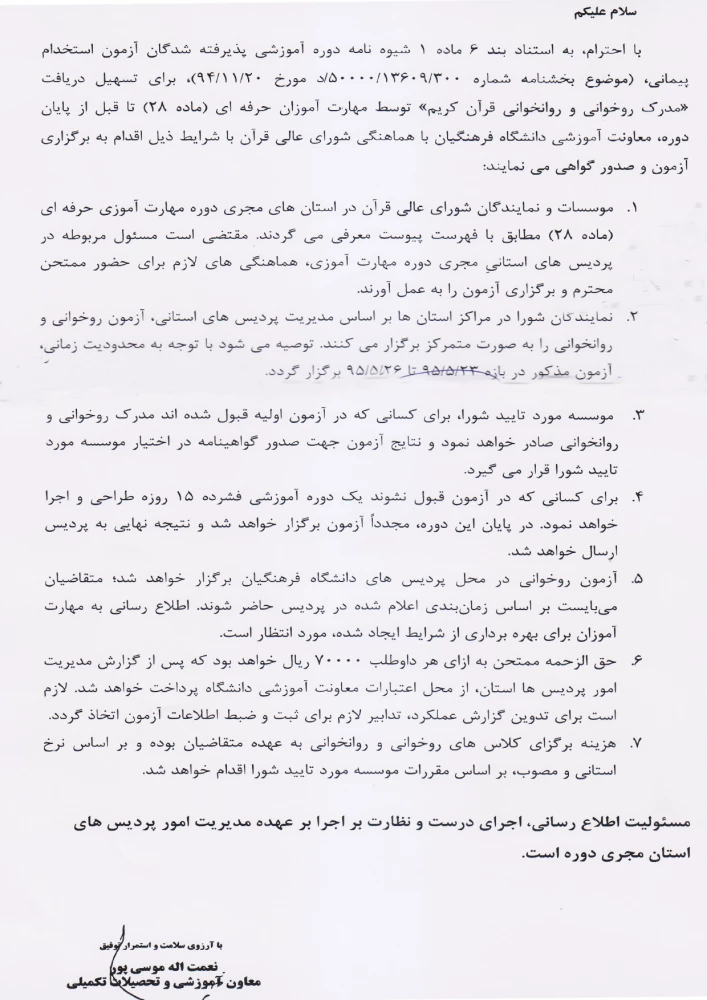 سلام علیکم
با احترام، به استناد بند ۶ ماده ۱ شیوه نامه دوره آموزشی پذیرفته شدگان آزمون استخدام
پیمانی، (موضوع بخشنامه شماره ۵۰۰۰۰/۱۳۶۰۹/۳۰۰/د مورخ ۹۴/۱۱/۲۰)، برای تسهیل دریافت
«مدرک روخوانی و روانخوانی قرآن کریم» توسط مهارت آموزان حرفه ای (ماده ۲۸) تا قبل از پایان
دوره، معاونت آموزشی دانشگاه فرهنگیان با هماهنگی شورای عالی قرآن با شرایط ذیل اقدام به برگزاری
آزمون و صدور گواهی می نمایند:
۱. موسسات و نمایندگان شورای عالی قرآن در استان های مجری دوره مهارت آموزی حرفه ای
(ماده ۲۸) مطابق با فهرست پیوست معرفی می گردند. مقتضی است مسئول مربوطه در
پردیس های استانیِ مجری دوره مهارت آموزی، هماهنگی های لازم برای حضور ممتحن
محترم و برگزاری آزمون را به عمل آورند.
۲. نمایندگان شورا در مراکز استان ها بر اساس مدیریت پردیس های استانی، آزمون روخوانی و
روانخوانی را به صورت متمرکز برگزار می کنند. توصیه می شود با توجه به محدودیت زمانی،
آزمون مذکور در بازه ۹۵/۵/۲۳ تا ۹۵/۵/۲۶ برگزار گردد.
۳. موسسه مورد تایید شورا، برای کسانی که در آزمون اولیه قبول شده اند مدرک روخوانی و
روانخوانی صادر خواهد نمود و نتایج آزمون جهت صدور گواهینامه در اختیار موسسه مورد
تایید شورا قرار می گیرد.
۴. برای کسانی که در آزمون قبول نشوند یک دوره آموزشی فشرده ۱۵ روزه طراحی و اجرا
خواهد نمود. در پایان این دوره، مجدداً آزمون برگزار خواهد شد و نتیجه نهایی به پردیس
ارسال خواهد شد.
۵. آزمون روخوانی در محل پردیس های دانشگاه فرهنگیان برگزار خواهد شد؛ متقاضیان
می‌بایست بر اساس زمان‌بندی اعلام شده در پردیس حاضر شوند. اطلاع رسانی به مهارت
آموزان برای بهره برداری از شرایط ایجاد شده، مورد انتظار است.
۶. حق الزحمه ممتحن به ازای هر داوطلب ۷۰۰۰۰ ریال خواهد بود که پس از گزارش مدیریت
امور پردیس ها استان، از محل اعتبارات معاونت آموزشی دانشگاه پرداخت خواهد شد. لازم
است برای تدوین گزارش عملکرد، تدابیر لازم برای ثبت و ضبط اطلاعات آزمون اتخاذ گردد.
۷. هزینه برگزای کلاس های روخوانی و روانخوانی به عهده متقاضیان بوده و بر اساس نرخ
استانی و مصوب، بر اساس مقررات موسسه مورد تایید شورا اقدام خواهد شد.
مسئولیت اطلاع رسانی، اجرای درست و نظارت بر اجرا بر عهده مدیریت امور پردیس های
استان مجری دوره است.
با آرزوی سلامت و استمرار توفیق
نعمت اله موسی پور
معاون آموزشی و تحصیلات تکمیلی